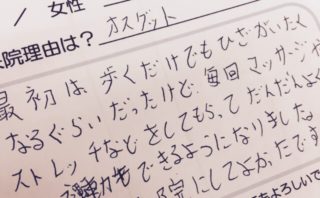 ／ 女性
院理由は? オスグット
最初は歩くだけでもひざがいたく
なるぐらいだったけど、毎回マッサージや
ストレッチなどをしてもらってだんだんよく
運動もできるようになりました。
院にしてよかったです
よろしいで